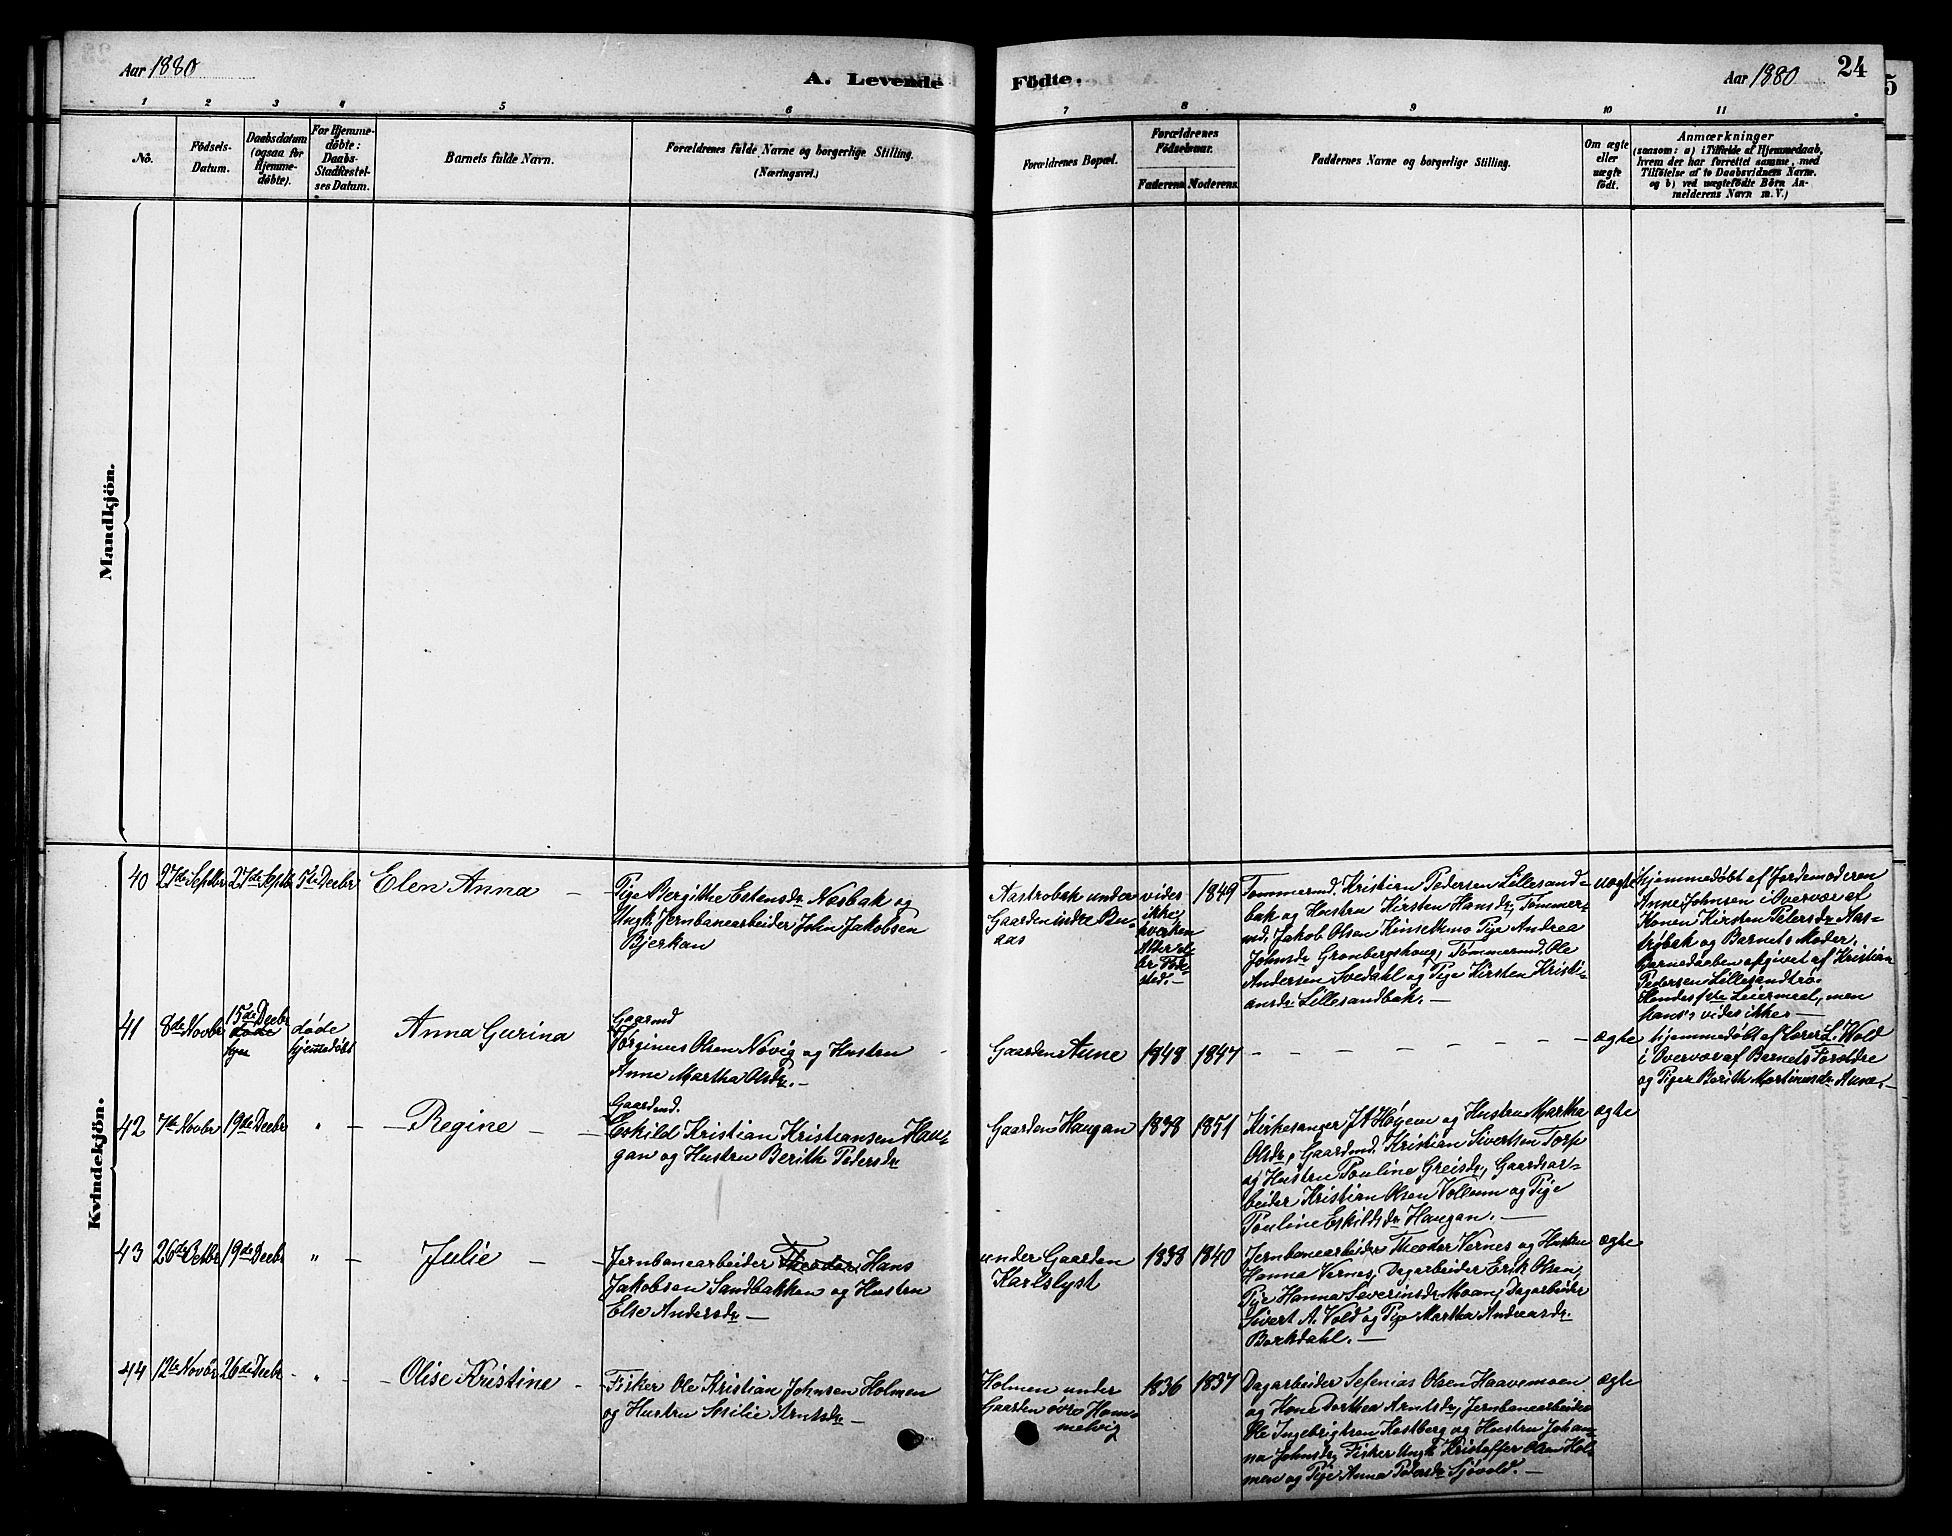 Aar 1880
A. Levende
Födte.
Aar 1880
24
5
1 2 3 4 5 6 7 8 9 10 11
No.
Födsels-
Datum.
Daabsdatum
(ogsaa for
Hjemme-
döbte).
For Hjemme-
döbte:
Daabs-
Stadfæstel-
ses Datum.
Barnets fulde Navn.
Forældrenes fulde Navne og borgerlige Stilling.
(Næringsvei.)
Forældrenes Bopæl.
Forældrenes
Födselsaar.
Faderens. Moderens.
Faddernes Navne og borgerlige Stilling.
Om ægte
eller
uægte
födt.
Anmærkninger
(saasom: a) i Tilfælde af Hjemmedaab,
hvem der har forrettet samme, med
Tilföielse af to Daabsvidners Navne.
og b) ved uægtefödte Börn An-
melderens Navn m. V.)
Mandkjön.
Kvindekjön.
40
27de Septbr
27de Septb
5te Decbr
Elen Anna
Pige Bergithe Estensdr Næsbak og
Ungk. Jernbanearbeider John Jakobsen
Bjerkan
Aastrobak under
Gaarden indre Bu-
aas
vides
ikke
hverken
Alder el-
ler Føde-
sted.
1849
Tømmermd. Kristian Pedersen Lillesand-
bak og Hustru Kirsten Hansdr, Tømmer-
md. Jakob Olsen Kinsethmo Pige Andrea
Johnsdr Grønbergshaug, Tømmermd. Ole
Andersen Svedahl og Pige Kirsten Kristi-
ansdr Lillesandbak.
uægte
Hjemmedøbt af Jordemoderen
Anne Johnsen i Overvær af
Konen Kirsten Petersdr Aas-
trøbak og Barnets Moder.
Barnedaaben afgivet af Kristian
Pedersen Lillesandtrø.
Hendes 1ste Leiermaal, men
hans's vides ikke
41
8de Novbr
15de Decbr
døde
hjem
døde
hjemmedøbt
Anna Gurina
Gaarmd
Jørginus Olsen Novig og Hustru
Anne Martha Olsdr.
Gaarden Aune
1848
1847
ægte
hjemmedøbt af Lærer L. Wold
i Overvær af Barnets Forældre
og Pigen Berith Martinusdr Aune.
42
7de Novbr
19de Decbr
"
Regine
Gaardmd.
Eskild Kristian Kristiansen Hau-
gan og Hustru Berith Pedersdr
Gaarden Haugan
1838
1851
Kirkesanger J A Høgene og Hustru Martha
Olsdr, Gaardmd. Kristian Sivertsen Torp
og Hustru Pauline Greisdr, Gaardsar-
beider Kristian Olsen Vollum og Pige
Pauline Eskildsdr Haugan.
ægte
43
26de Octbr
19de Decbr
"
Julie
Jernbanearbeider Theodor, Hans
Jakobsen Sandbakken og Hustru
Else Andersdr
under Gaarden
Karlslyst
1838
1840
Jernbanearbeider Theodor Vernes og Hustru
Hanna Vernes, Dagarbeider Erik Olsen,
Pige Hanna Severinsdr Moan, Dagarbeider
Sivert A. Vold og Pige Martha Andreasdr
Borkdahl.
ægte
44
12te Novbr
26de Decbr
"
Olise Kristine
Fisker Ole Kristian Johnsen Holmen
og Hustru Sesilie Arntsdr
Holmen under
Gaarden øvre Hom-
melvig
1836
1837
Dagarbeider Sefenias Olsen Haavemoen
og Kone Dorthea Arntsdr, Jernbanearbeider
Ole Ingebrigtsen Kastberg og Hustru Johan-
na Johnsdr, Fisker Ungk. Kristoffer Olsen Hol-
men og Pige Anna Petersdr Sjøvold.
ægte